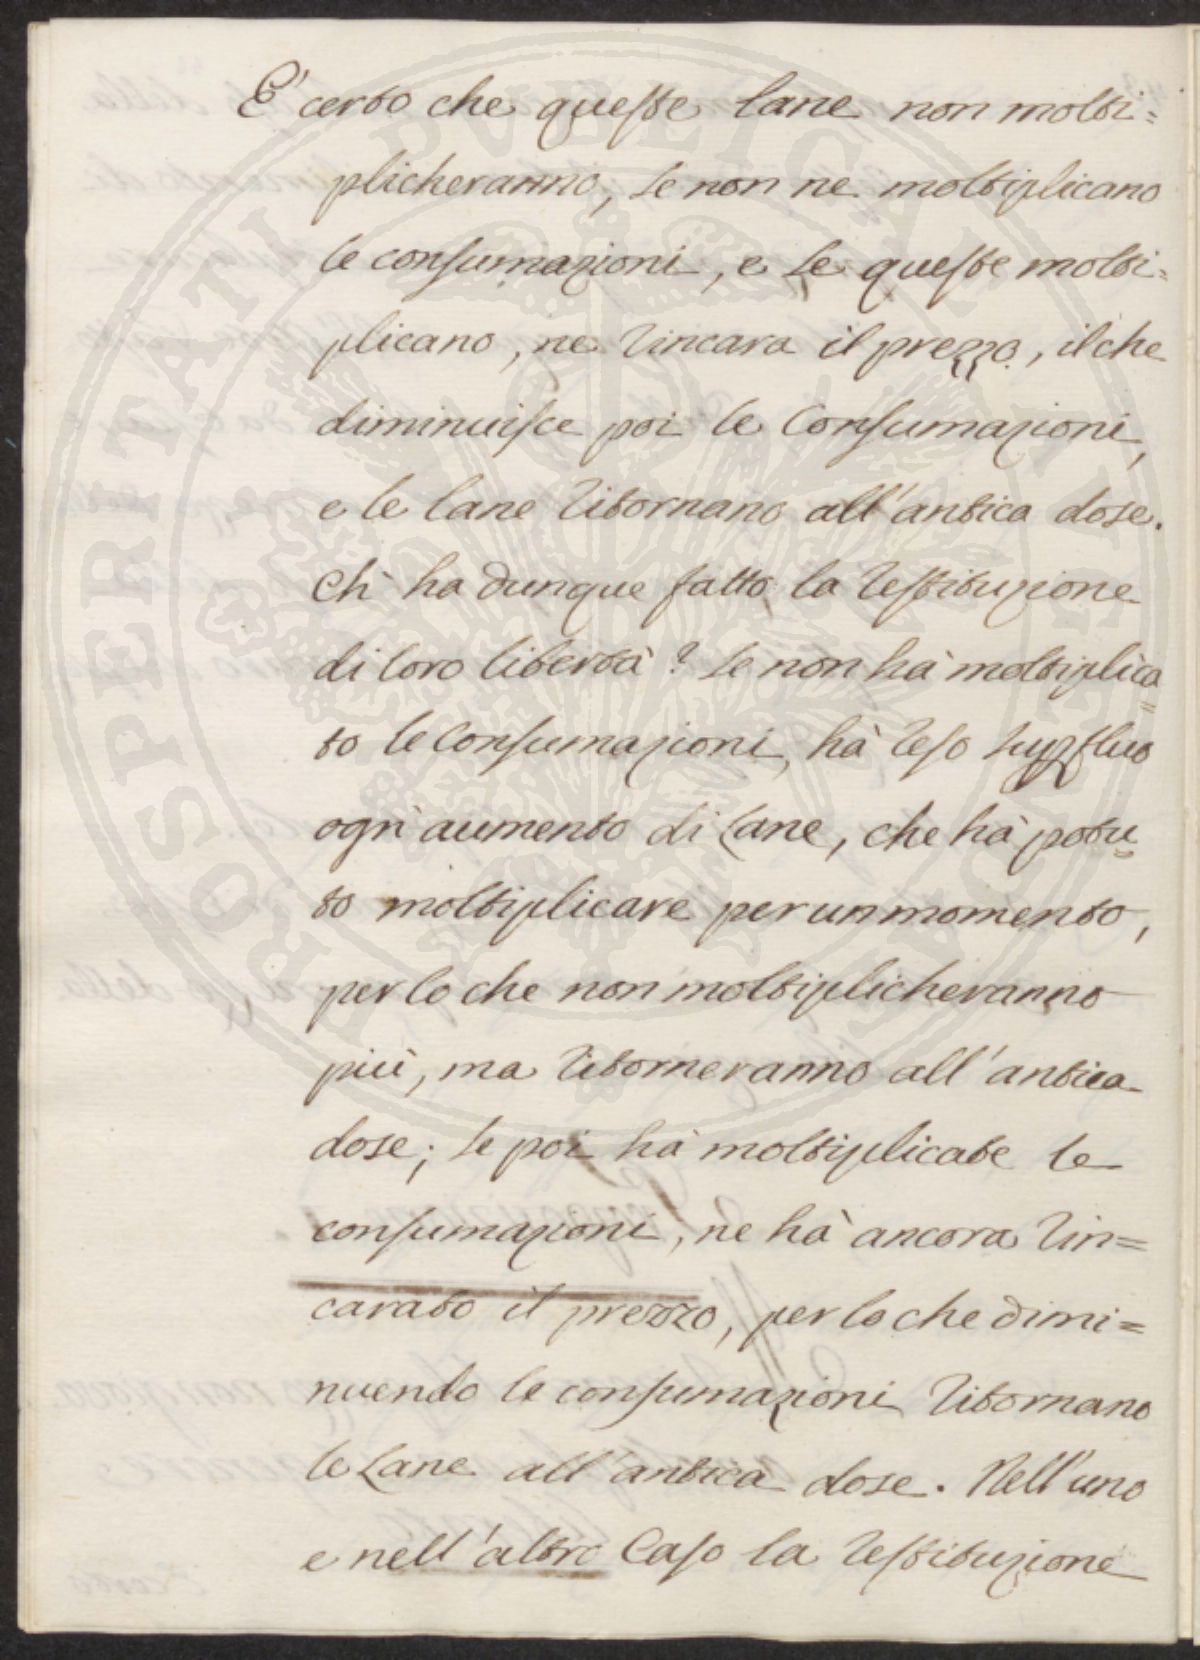 E' certo che queste lane non molti=
plicheranno, se non ne moltiplicano
le consumazioni, e se queste molti=
plicano, ne rincara il prezzo, il che
diminuisce poi le Consumazioni,
e le lane ritornano all'antica dose.
Chì ha dunque fatto la restituzione
di loro libertà? Se non hà moltiplica=
to le Consumazioni, hà reso superfluo
ogni aumento di Lane, che hà potu=
to moltiplicare per un momento,
per lo che non moltiplicheranno
più, ma ritorneranno all'antica
dose; se poi hà moltiplicate le
consumazioni, ne hà ancora rin=
carato il prezzo, per lo che dimi=
nuendo le consumazioni ritornano
le Lane all'antica dose. Nell'uno
e nell'altro Caso la restituzione
PROSPERITATI PUBLICAE AUGENDAE